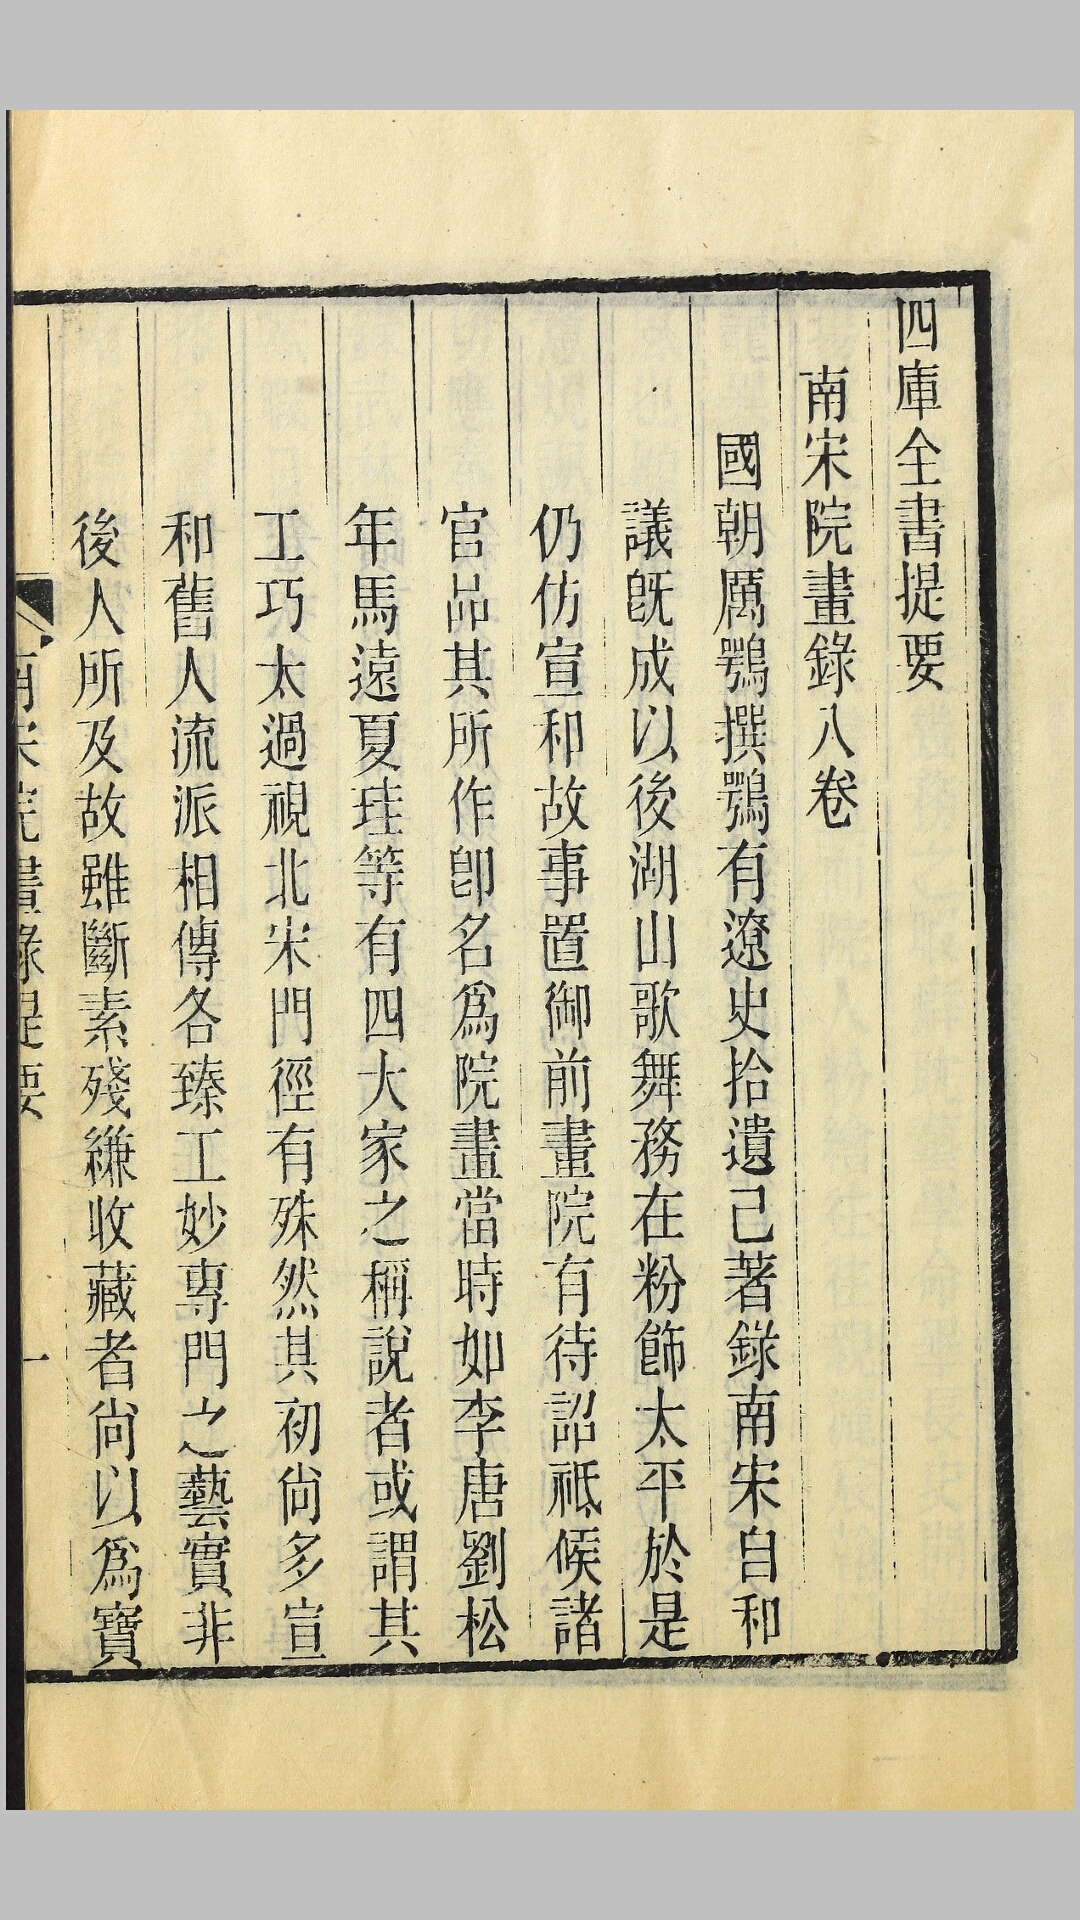 四庫全書提要
南宋院畫錄八卷
國朝厲鶚撰鶚有遼史拾遺己著錄南宋自和
議旣成以後湖山歌舞務在粉飾太平於是
仍仿宣和故事置御前畫院有待詔祗候諸
官品其所作卽名爲院畫當時如李唐劉松
年馬遠夏珪等有四大家之稱說者或謂其
工巧太過視北宋門徑有殊然其初尙多宣
和舊人流派相傳各臻工妙專門之藝實非
後人所及故雖斷素殘縑收藏者尙以爲寶
南宋院畫錄提要
一